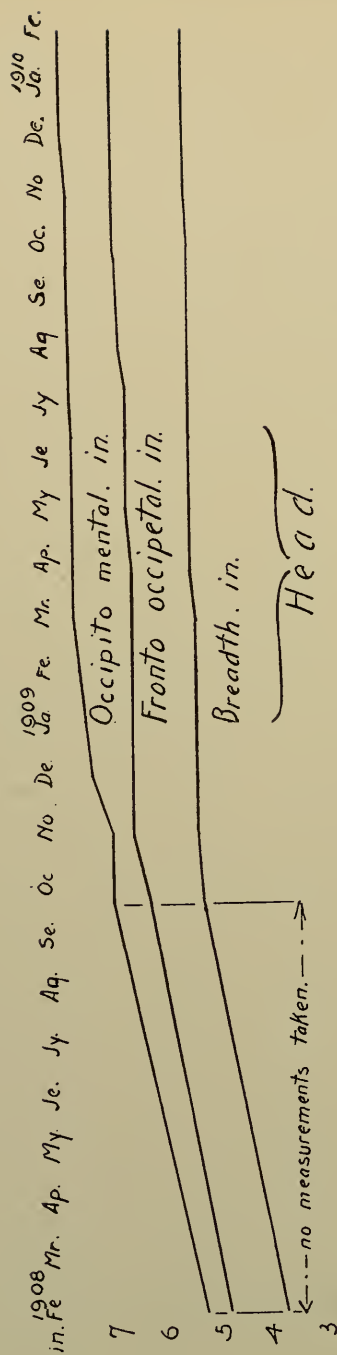 in. 1908 Fe Mr. Ap. My. Je. Jy. Ag. Se. Oc No. De. 1909 Ja Fe. Mr. Ap. My Je Jy Ag Se. Oc. No De. 1910 Ja. Fe.
7
6
5
4
3
Occipito mental. in.
Fronto occipetal. in.
Breadth. in.
Head.
no measurements taken.